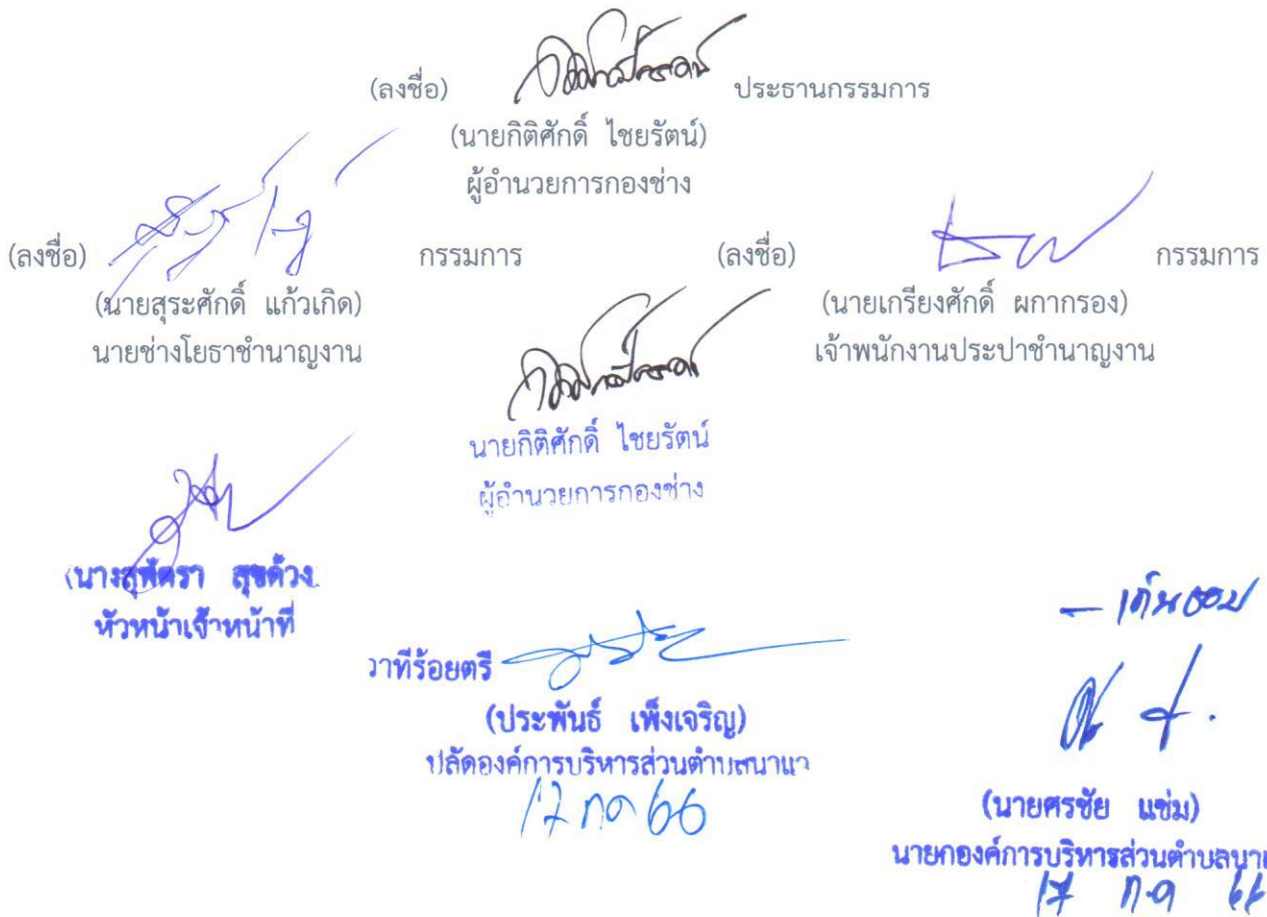 (ลงชื่อ) ประธานกรรมการ
(นายกิติศักดิ์ ไชยรัตน์)
ผู้อำนวยการกองช่าง
(ลงชื่อ) กรรมการ (ลงชื่อ) กรรมการ
(นายสุระศักดิ์ แก้วเกิด) (นายเกรียงศักดิ์ ผกากรอง)
นายช่างโยธาชำนาญงาน เจ้าพนักงานประปาชำนาญงาน
นายกิติศักดิ์ ไชยรัตน์
ผู้อำนวยการกองช่าง
(นางสุพัตรา สุขด้วง
หัวหน้าเจ้าหน้าที่
ว่าที่ร้อยตรี
(ประพันธ์ เพ็งเจริญ)
ปลัดองค์การบริหารส่วนตำบลนาแว
17 กค 66
- เห็นชอบ
(นายศรชัย แช่ม)
นายกองค์การบริหารส่วนตำบลนาแ
17 ก.ค 66